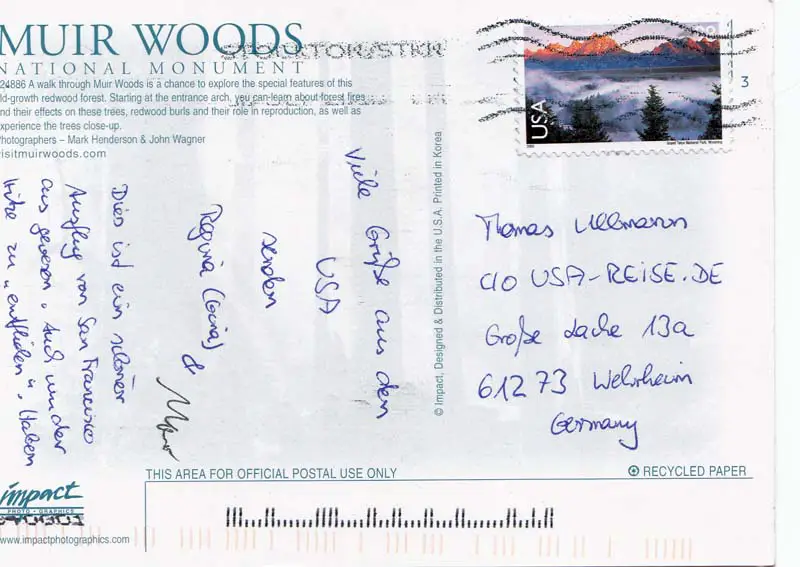 MUIR WOODS
NATIONAL MONUMENT
24886 A walk through Muir Woods is a chance to explore the special features of this
ld-growth redwood forest. Starting at the entrance arch, you can learn about forest fires
nd their effects on these trees, redwood burls and their role in reproduction, as well as
xperience the trees close-up.
hotographers – Mark Henderson & John Wagner
isitmuirwoods.com
USA
3
Viele Grüße aus den
USA
senden
Regina (Guiras) &
Dies ist ein schöner
Ausflug von San Francisco
aus gewesen. Auch um der
Hitze zu "entfliehen". Haben
© Impact, Designed & Distributed in the U.S.A. Printed in Korea
Thomas Ullmann
c/o USA-REISE.DE
Große Lache 13a
61273 Wehrheim
Germany
THIS AREA FOR OFFICIAL POSTAL USE ONLY
RECYCLED PAPER
impact
PHOTO • GRAPHICS
www.impactphotographics.com